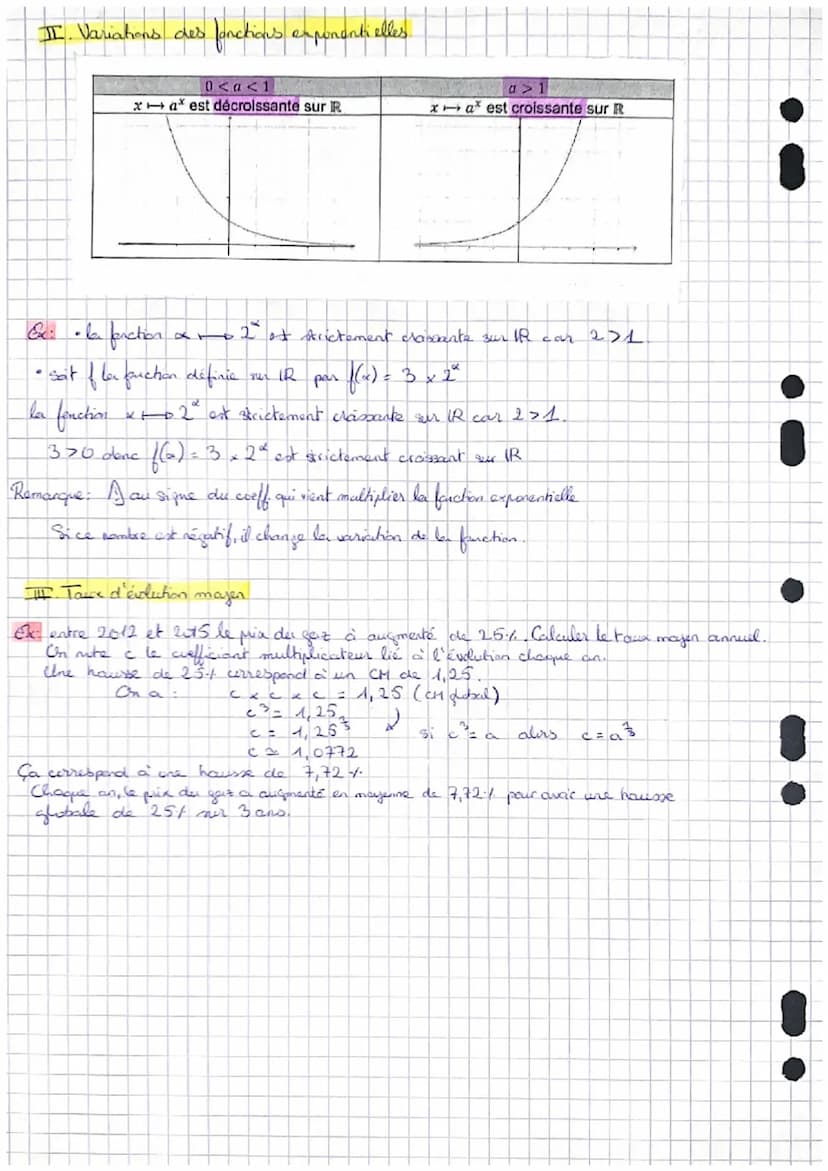 II. Variations des fonctions exponentielles
0 < a < 1
a > 1
x ↦ aˣ est décroissante sur ℝ
x ↦ aˣ est croissante sur ℝ
Ex: • la fonction x ↦ 2ˣ est strictement croissante sur ℝ car 2>1.
• soit f la fonction définie sur ℝ par f(x) = 3 × 2ˣ
la fonction x ↦ 2ˣ est strictement croissante sur ℝ car 2>1.
3>0 donc f(x) = 3 × 2ˣ est strictement croissant sur ℝ
Remarque: ⚠ au signe du coeff. qui vient multiplier la fonction exponentielle
Si ce nombre est négatif, il change la variation de la fonction.
III. Taux d'évolution moyen
Ex: entre 2012 et 2015 le prix du gaz à augmenté de 25%. Calculer le taux moyen annuel.
On note c le coefficient multiplicateur lié à l'évolution chaque an.
Une hausse de 25% correspond à un CM de 1,25.
On a : c × c × c = 1,25 (CM global)
c³ = 1,25
c = 1,25^(1/3) si c³ = a alors c = a^(1/3)
c ≃ 1,0772
Ça correspond à une hausse de 7,72 %.
Chaque an, le prix du gaz a augmenté en moyenne de 7,72% pour avoir une hausse
globale de 25% sur 3 ans.